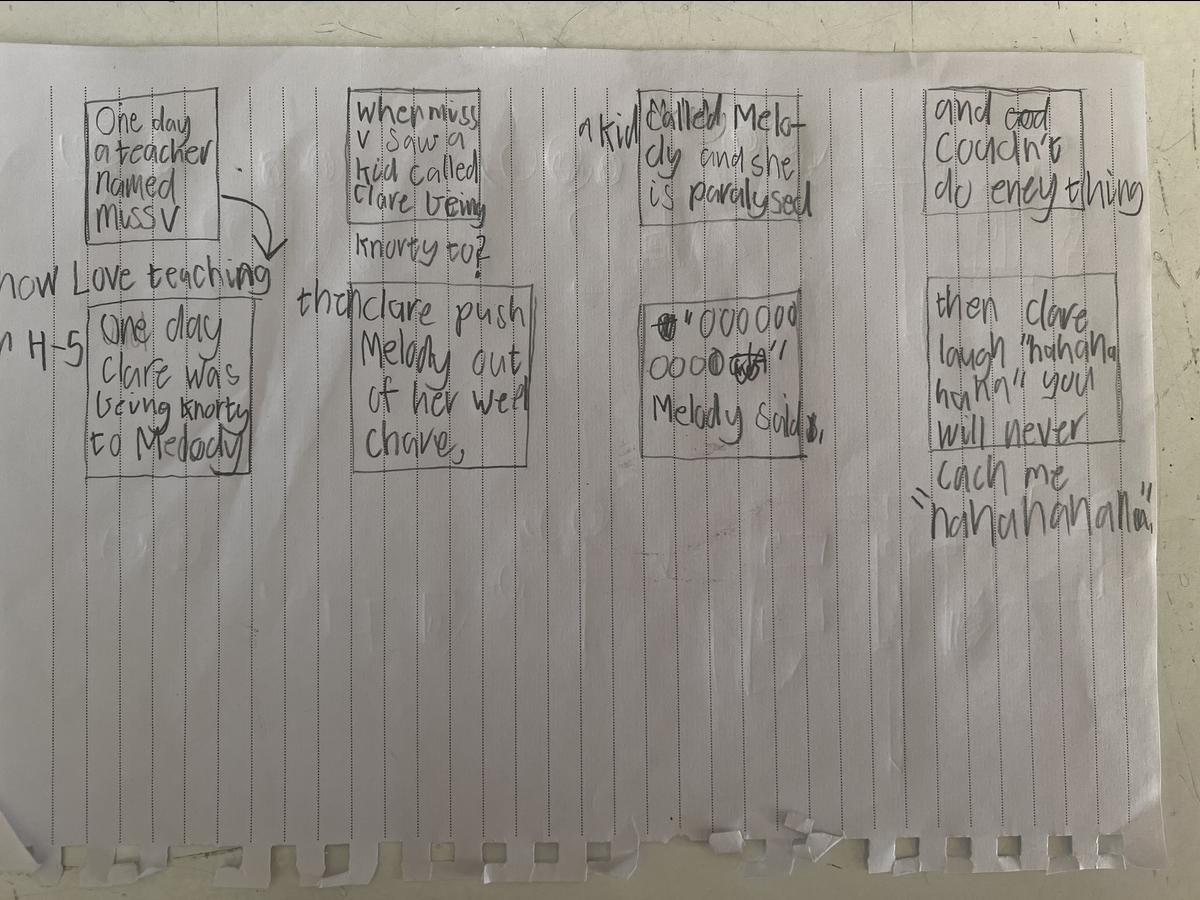 One day
a teacher
named
miss V
how Love teaching
H-5
when miss
v saw a
kid called
Clare being
knorty to?
a kid called Melo-
dy and she
is paralysed
and
Coudn't
do eney thing
One day
Clare was
being knorty
to Medody
then clare push
Melody out
of her weel
chare,
"oooooo
oooo"
Melody said.
then clare
laugh "hahaha
haha" you
will never
cach me
"hahahahaha".